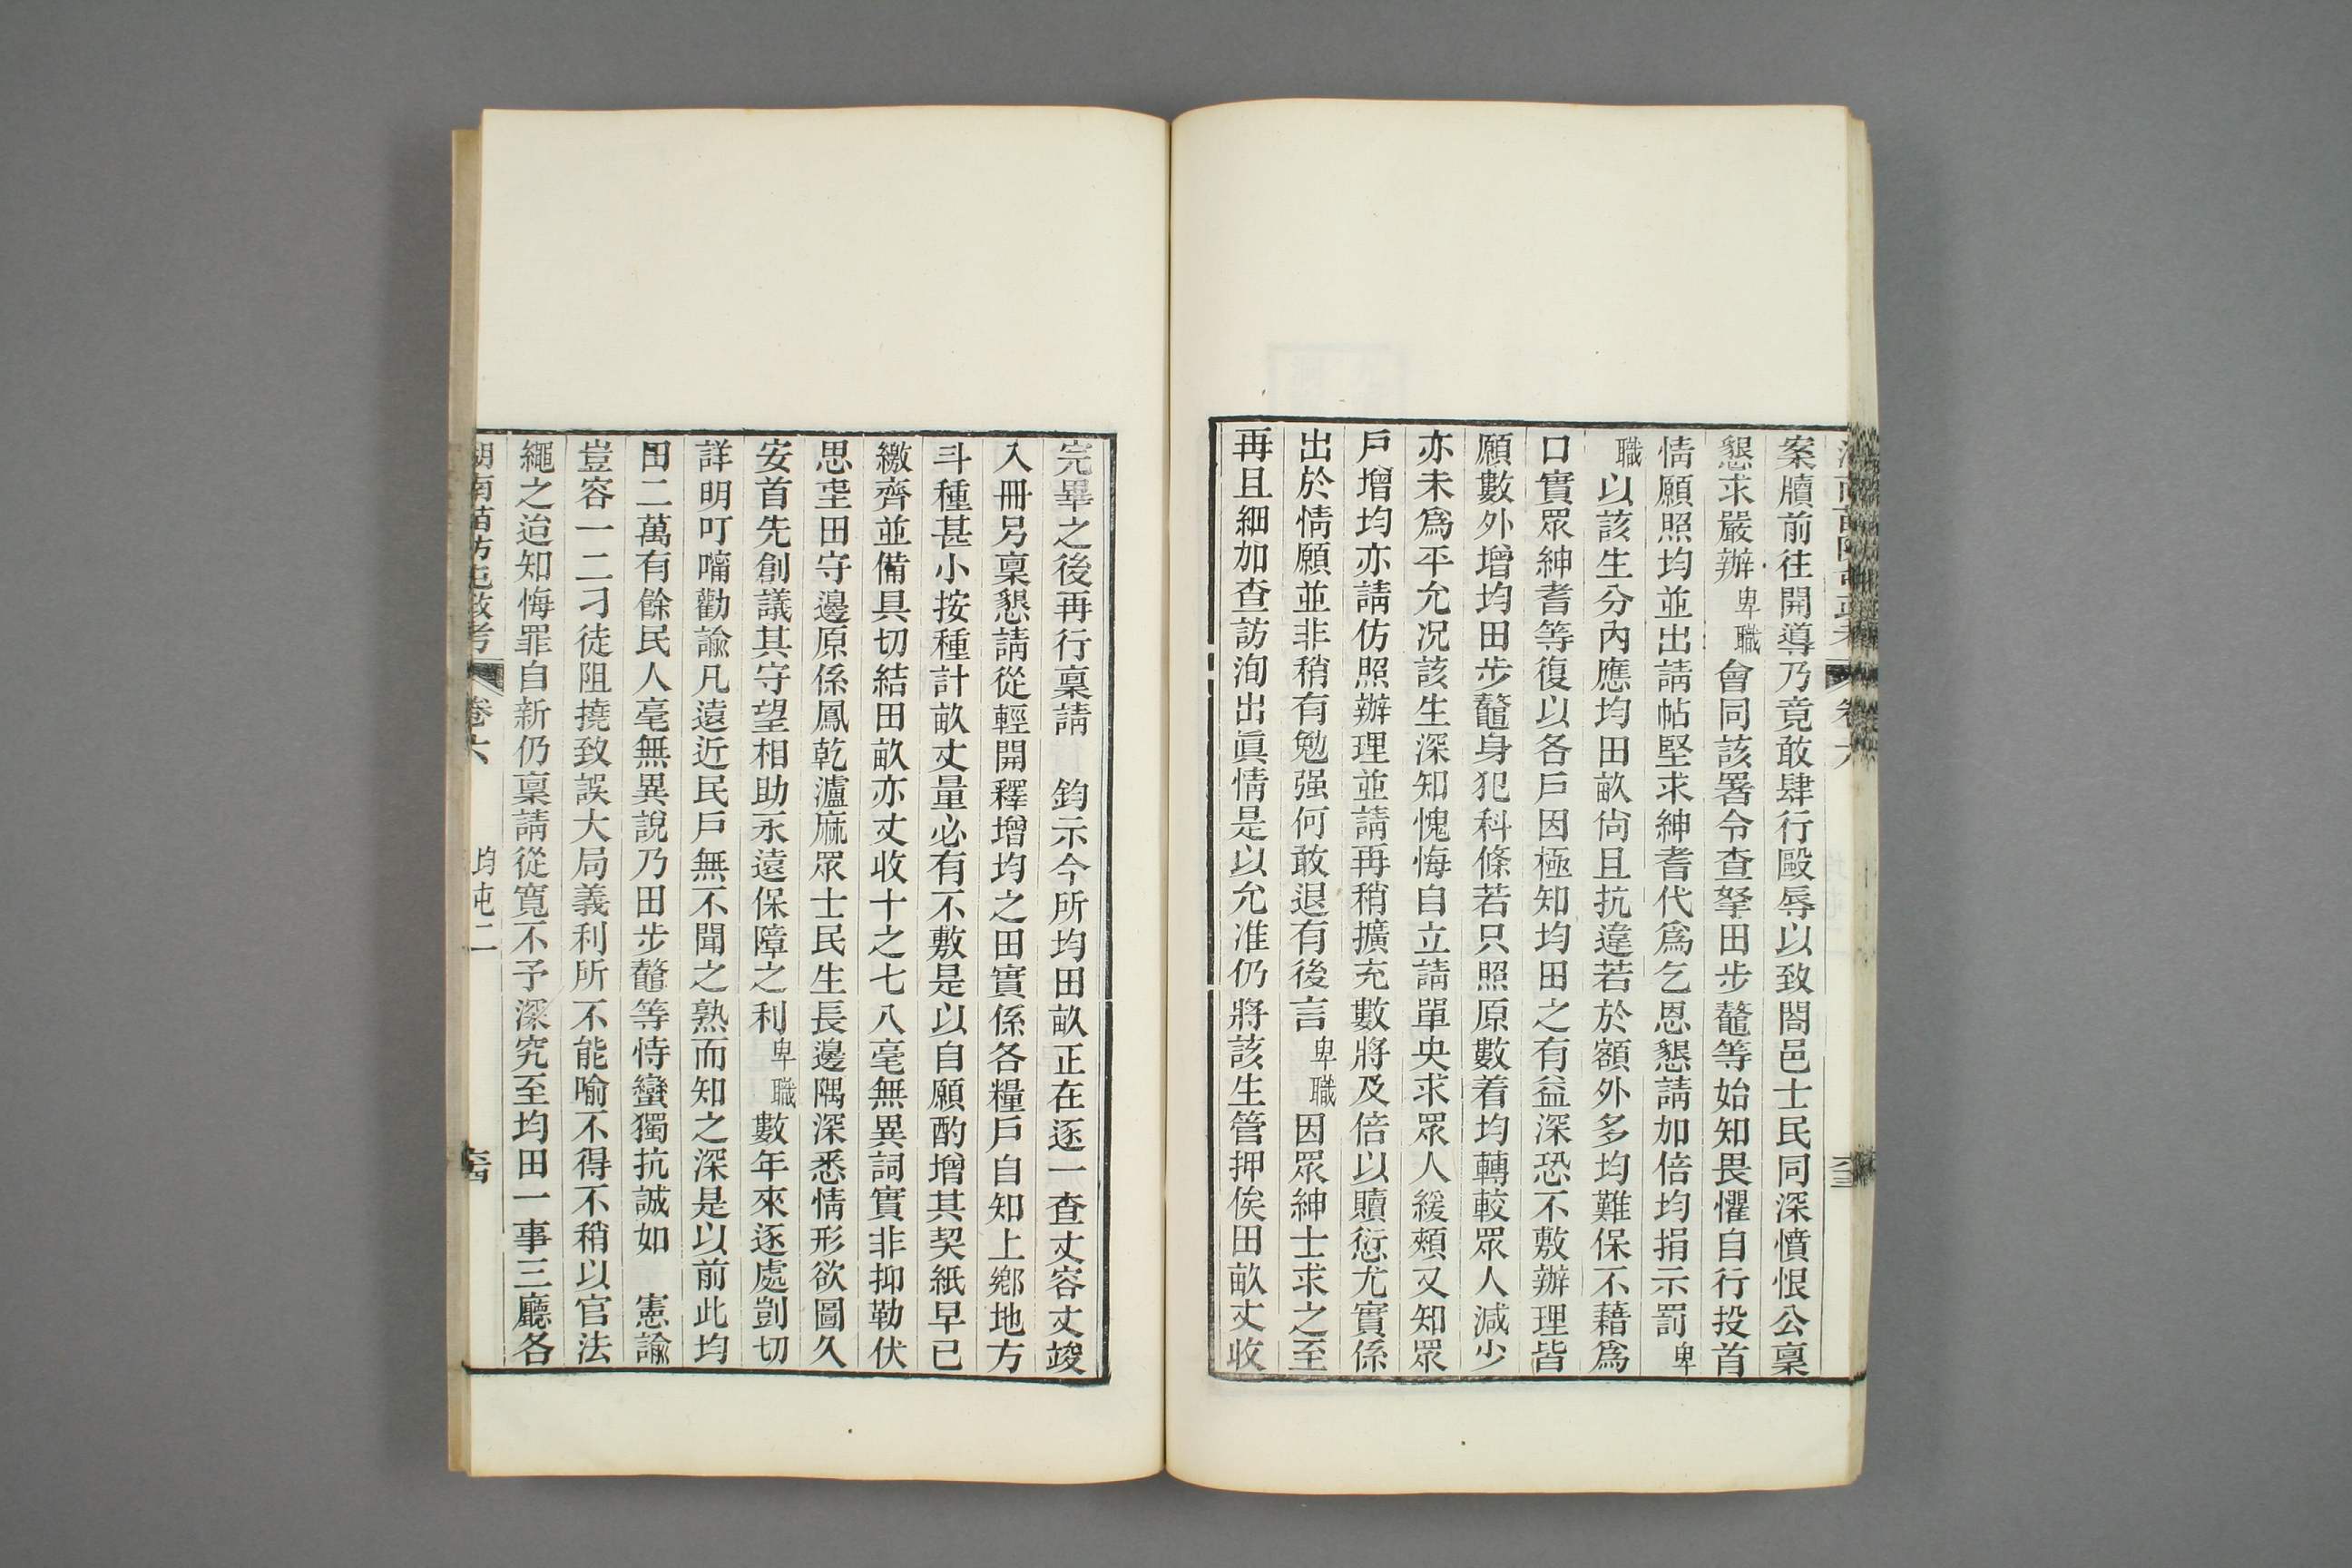 案牘前往開導乃竟敢肆行毆辱以致閤邑士民同深憤恨公稟
懇求嚴辦卑職會同該署令查拏田步鼇等始知畏懼自行投首
情願照均並出請帖堅求紳耆代爲乞恩懇請加倍均捐示罰卑
職以該生分內應均田畝尙且抗違若於額外多均難保不藉爲
口實眾紳耆等復以各戶因極知均田之有益深恐不敷辦理皆
願數外增均田步鼇身犯科條若只照原數着均轉較眾人減少
亦未爲平允况該生深知愧悔自立請單央求眾人緩頰又知眾
戶增均亦請仿照辦理並請再稍擴充數將及倍以贖愆尤實係
出於情願並非稍有勉强何敢退有後言卑職因眾紳士求之至
再且細加查訪洵出眞情是以允准仍將該生管押俟田畝丈收
完畢之後再行稟請　鈞示今所均田畝正在逐一查丈容丈竣
入冊另稟懇請從輕開釋增均之田實係各糧戶自知上鄉地方
斗種甚小按種計畝丈量必有不敷是以自願酌增其契紙早已
繳齊並備具切結田畝亦丈收十之七八毫無異詞實非抑勒伏
思垔田守邊原係鳳乾瀘麻眾士民生長邊隅深悉情形欲圖久
安首先創議其守望相助永遠保障之利卑職數年來逐處剴切
詳明叮囑勸諭凡遠近民戶無不聞之熟而知之深是以前此均
田二萬有餘民人毫無異說乃田步鼇等恃蠻獨抗誠如　憲諭
豈容一二刁徒阻撓致誤大局義利所不能喻不得不稍以官法
繩之迨知悔罪自新仍稟請從寬不予深究至均田一事三廳各
湖南苗防屯政考　卷六　均屯二